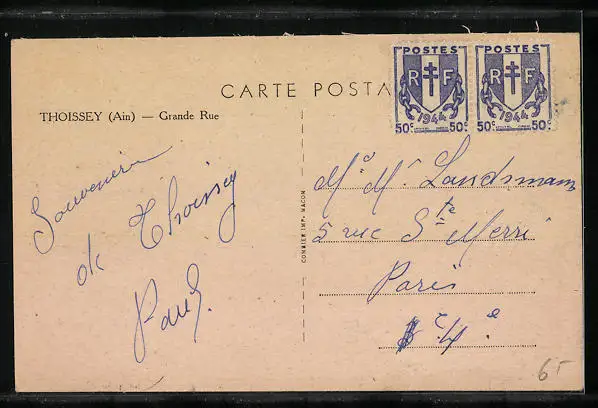 POSTES
RF
1944
50c 50c
POSTES
RF
1944
50c 50c
CARTE POSTA
THOISSEY (Ain) — Grande Rue
Souvenir
de Thoissey
Paul.
COMBIER IMP. MACON
Landsmann
5 rue Ste Merri
Paris
4e
6-